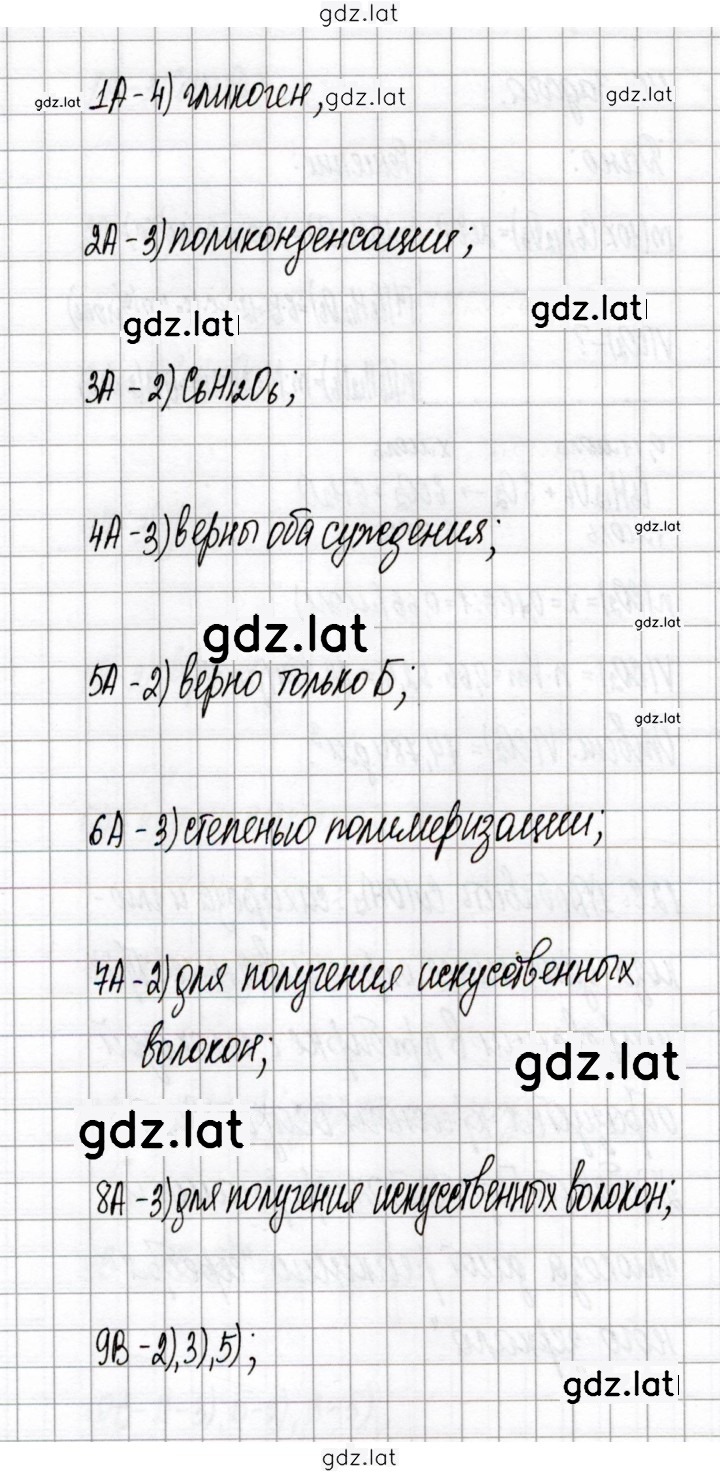 gdz.lat
gdz.lat 1А - 4) гликоген, gdz.lat gdz.lat
2А - 3) поликонденсации;
gdz.lat gdz.lat
3А - 2) C6H12O6;
4А - 3) верны оба суждения; gdz.lat
gdz.lat gdz.lat
5А - 2) верно только Б;
gdz.lat
6А - 3) степенью полимеризации;
7А - 2) для получения искусственных
волокон; gdz.lat
gdz.lat
8А - 3) для получения искусственных волокон;
9В - 2), 3), 5);
gdz.lat
gdz.lat